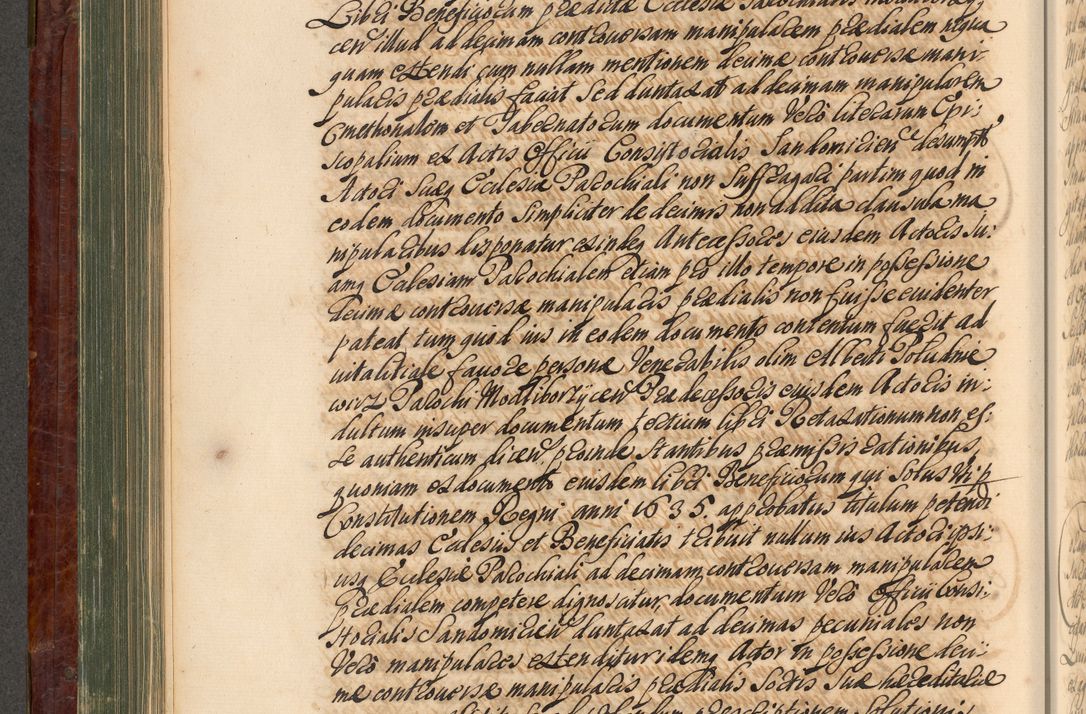 Libri Beneficiorum prædictæ Ecclesiæ Parochialis
cen̄ illud ad decimam controversam manipularem prædialem nequa
quam extendi cum nullam mentionem decimæ controversæ mani
pularis prædialis faciat sed duntaxat ad decimam manipularem
Cmethonalem et Tabernatorum documentum Vero literarum Epi:
scopalium ex Actis Officii Consistorialis Sandomirien̄ desumpt̄
Actori Suæq Ecclesiæ Parochiali non suffragari partim quod in
eodem documento simpliciter de decimis non addita clausula ma
nipularibus disponatur, exindeq Antecessores eiusdem Actoris su:
amq Ecclesiam Parochialem etiam pro illo tempore in possessione
decimæ controversæ manipularis prædialis non fuisse evidenter
pateat tum quod ius in eodem documento contentum fuerit ad
vitalitiale favore personæ Venerabilis olim Alberti Poludnie
wicz Parochi Modliborzycen̄ Prædecessoris eiusdem Actoris in:
dultum insuper documentum tertium libri Retaxationum non es:
se authenticum dicen̄ proinde stantibus præmissis rationibus
quoniam ex documento eiusdem libri Beneficiorum qui solus
Constitutionem Regni anni 1635. approbatus titulum petendi
decimas Ecclesiis et Beneficiatis tribuit nullum ius Actori ipsi:
usq Ecclesiæ Parochiali ad decimam controversam manipularem
Prædialem competere dignoscatur, documentum Vero Officii Consi:
storialis Sandomirien̄ duntaxat ad decimas pecuniales non
Vero manipulares extenditur idemq Actor in possessione deci:
mæ controversæ manipularis prædialis Sortis Suæ hæreditariæ